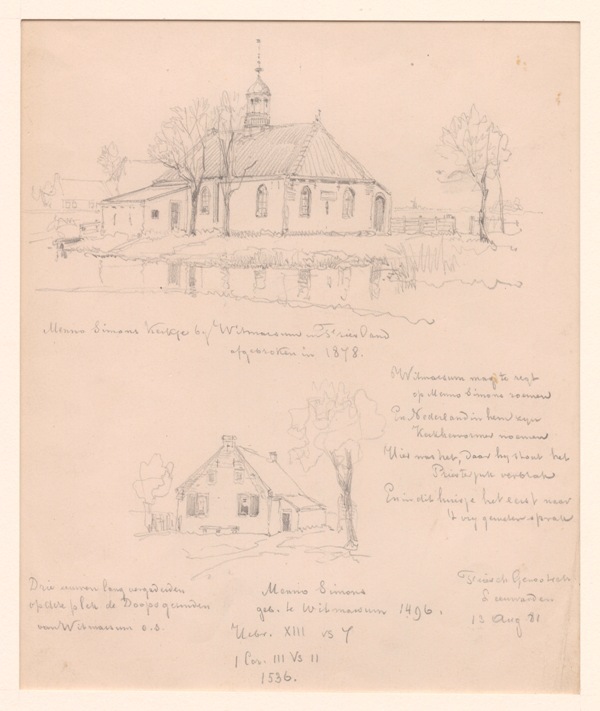 Menno Simons Kerkje bij Witmarsum in Friesland
afgebroken in 1878.
Witmarsum mag te regt
op Menno Simons roemen
En Nederland in hem zijn
Kerkhervormer noemen
Hier was het, Daar hij stout het
Priesterjuk verbrak
En in dit huisje het eerst naar
't vrij gemoed sprak
Drie eeuwen lang vergaderden
op deze plek de Doopsgezinden
van Witmarsum e.o.
Menno Simons
geb. te Witmarsum 1496.
Hebr. XIII vs 7
1 Cor. III Vs 11
1536.
Friesch Genootsch.
Leeuwarden
13 Aug 81